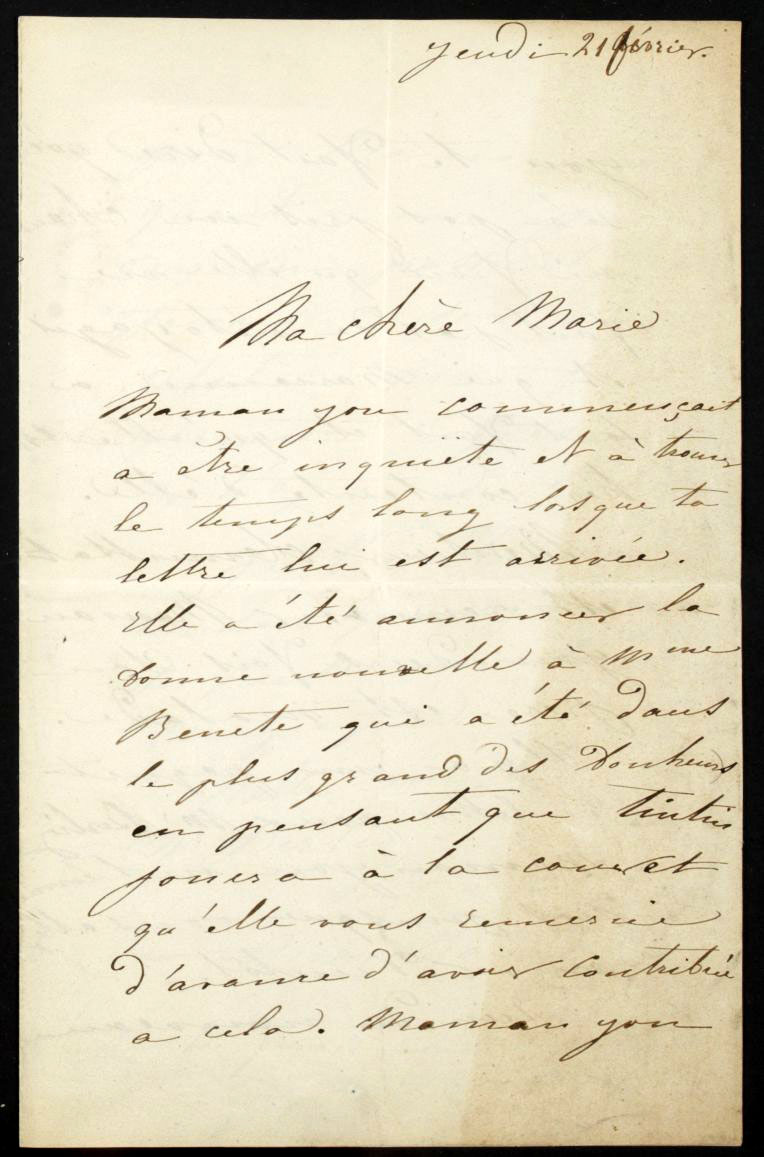 Jeudi 21 février.
Ma chère Marie
Maman you commençait
a être inquiète et à trouver
le temps long lorsque ta
lettre lui est arrivée.
Elle a été annoncer la
bonne nouvelle à Mme
Benete qui a été dans
le plus grand des bonheurs
en pensant que tintin
jouera à la cour et
qu'elle vous remercie
d'avance d'avoir contribué
a cela. Maman you